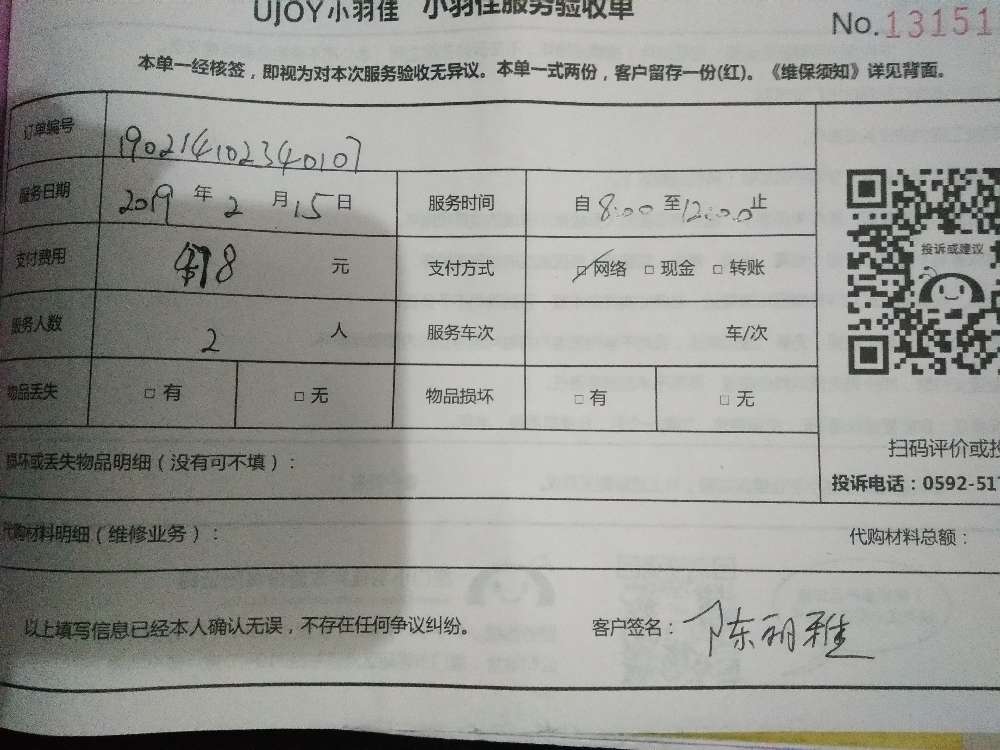 UJOY小羽佳 小羽佳服务验收单
No.13151
本单一经核签，即视为对本次服务验收无异议。本单一式两份，客户留存一份(红)。《维保须知》详见背面。
订单编号 190214102340107
服务日期 2019 年 2 月 15 日 服务时间 自 8:00 至 12:00 止
投诉或建议
支付费用 478 元 支付方式 □网络 □现金 □转账
服务人数 2 人 服务车次 车/次
物品丢失 □有 □无 物品损坏 □有 □无
扫码评价或投
损坏或丢失物品明细（没有可不填）：
投诉电话：0592-517
代购材料明细（维修业务）： 代购材料总额：
以上填写信息已经本人确认无误，不存在任何争议纠纷。 客户签名：陈丽雅